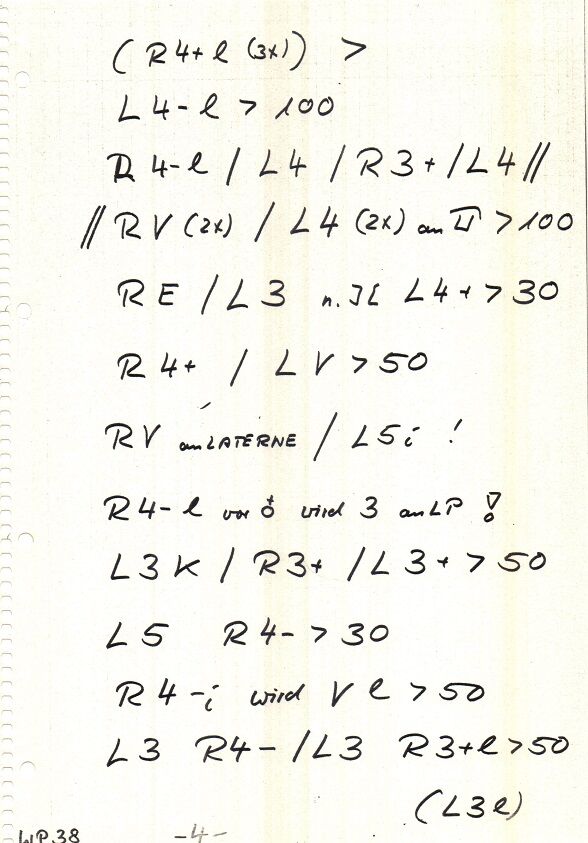 (R4+l (3x)) >
L4-l > 100
R4-l / L4 / R3+ / L4 //
// RV (2x) / L4 (2x) an > 100
RE / L3 n. L4+ > 30
R4+ / LV > 50
RV an LATERNE / L5i !
R4-l vor wird 3 an LP
L3K / R3+ / L3+ > 50
L5 R4- > 30
R4-i wird Vl > 50
L3 R4- / L3 R3+l > 50
(L3l)
WP.38 -4-